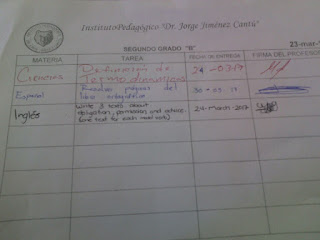 Instituto Pedagógico "Dr. Jorge Jiménez Cantú"
SEGUNDO GRADO "B"
23-mar-
MATERIA TAREA FECHA DE ENTREGA FIRMA DEL PROFESOR
Ciencias Definición de
Termodinamica
Español páginas del
libro
Inglés Write 3 texts about
obligation, permission and advice.
(one text for each modal verb)
24-March-2017